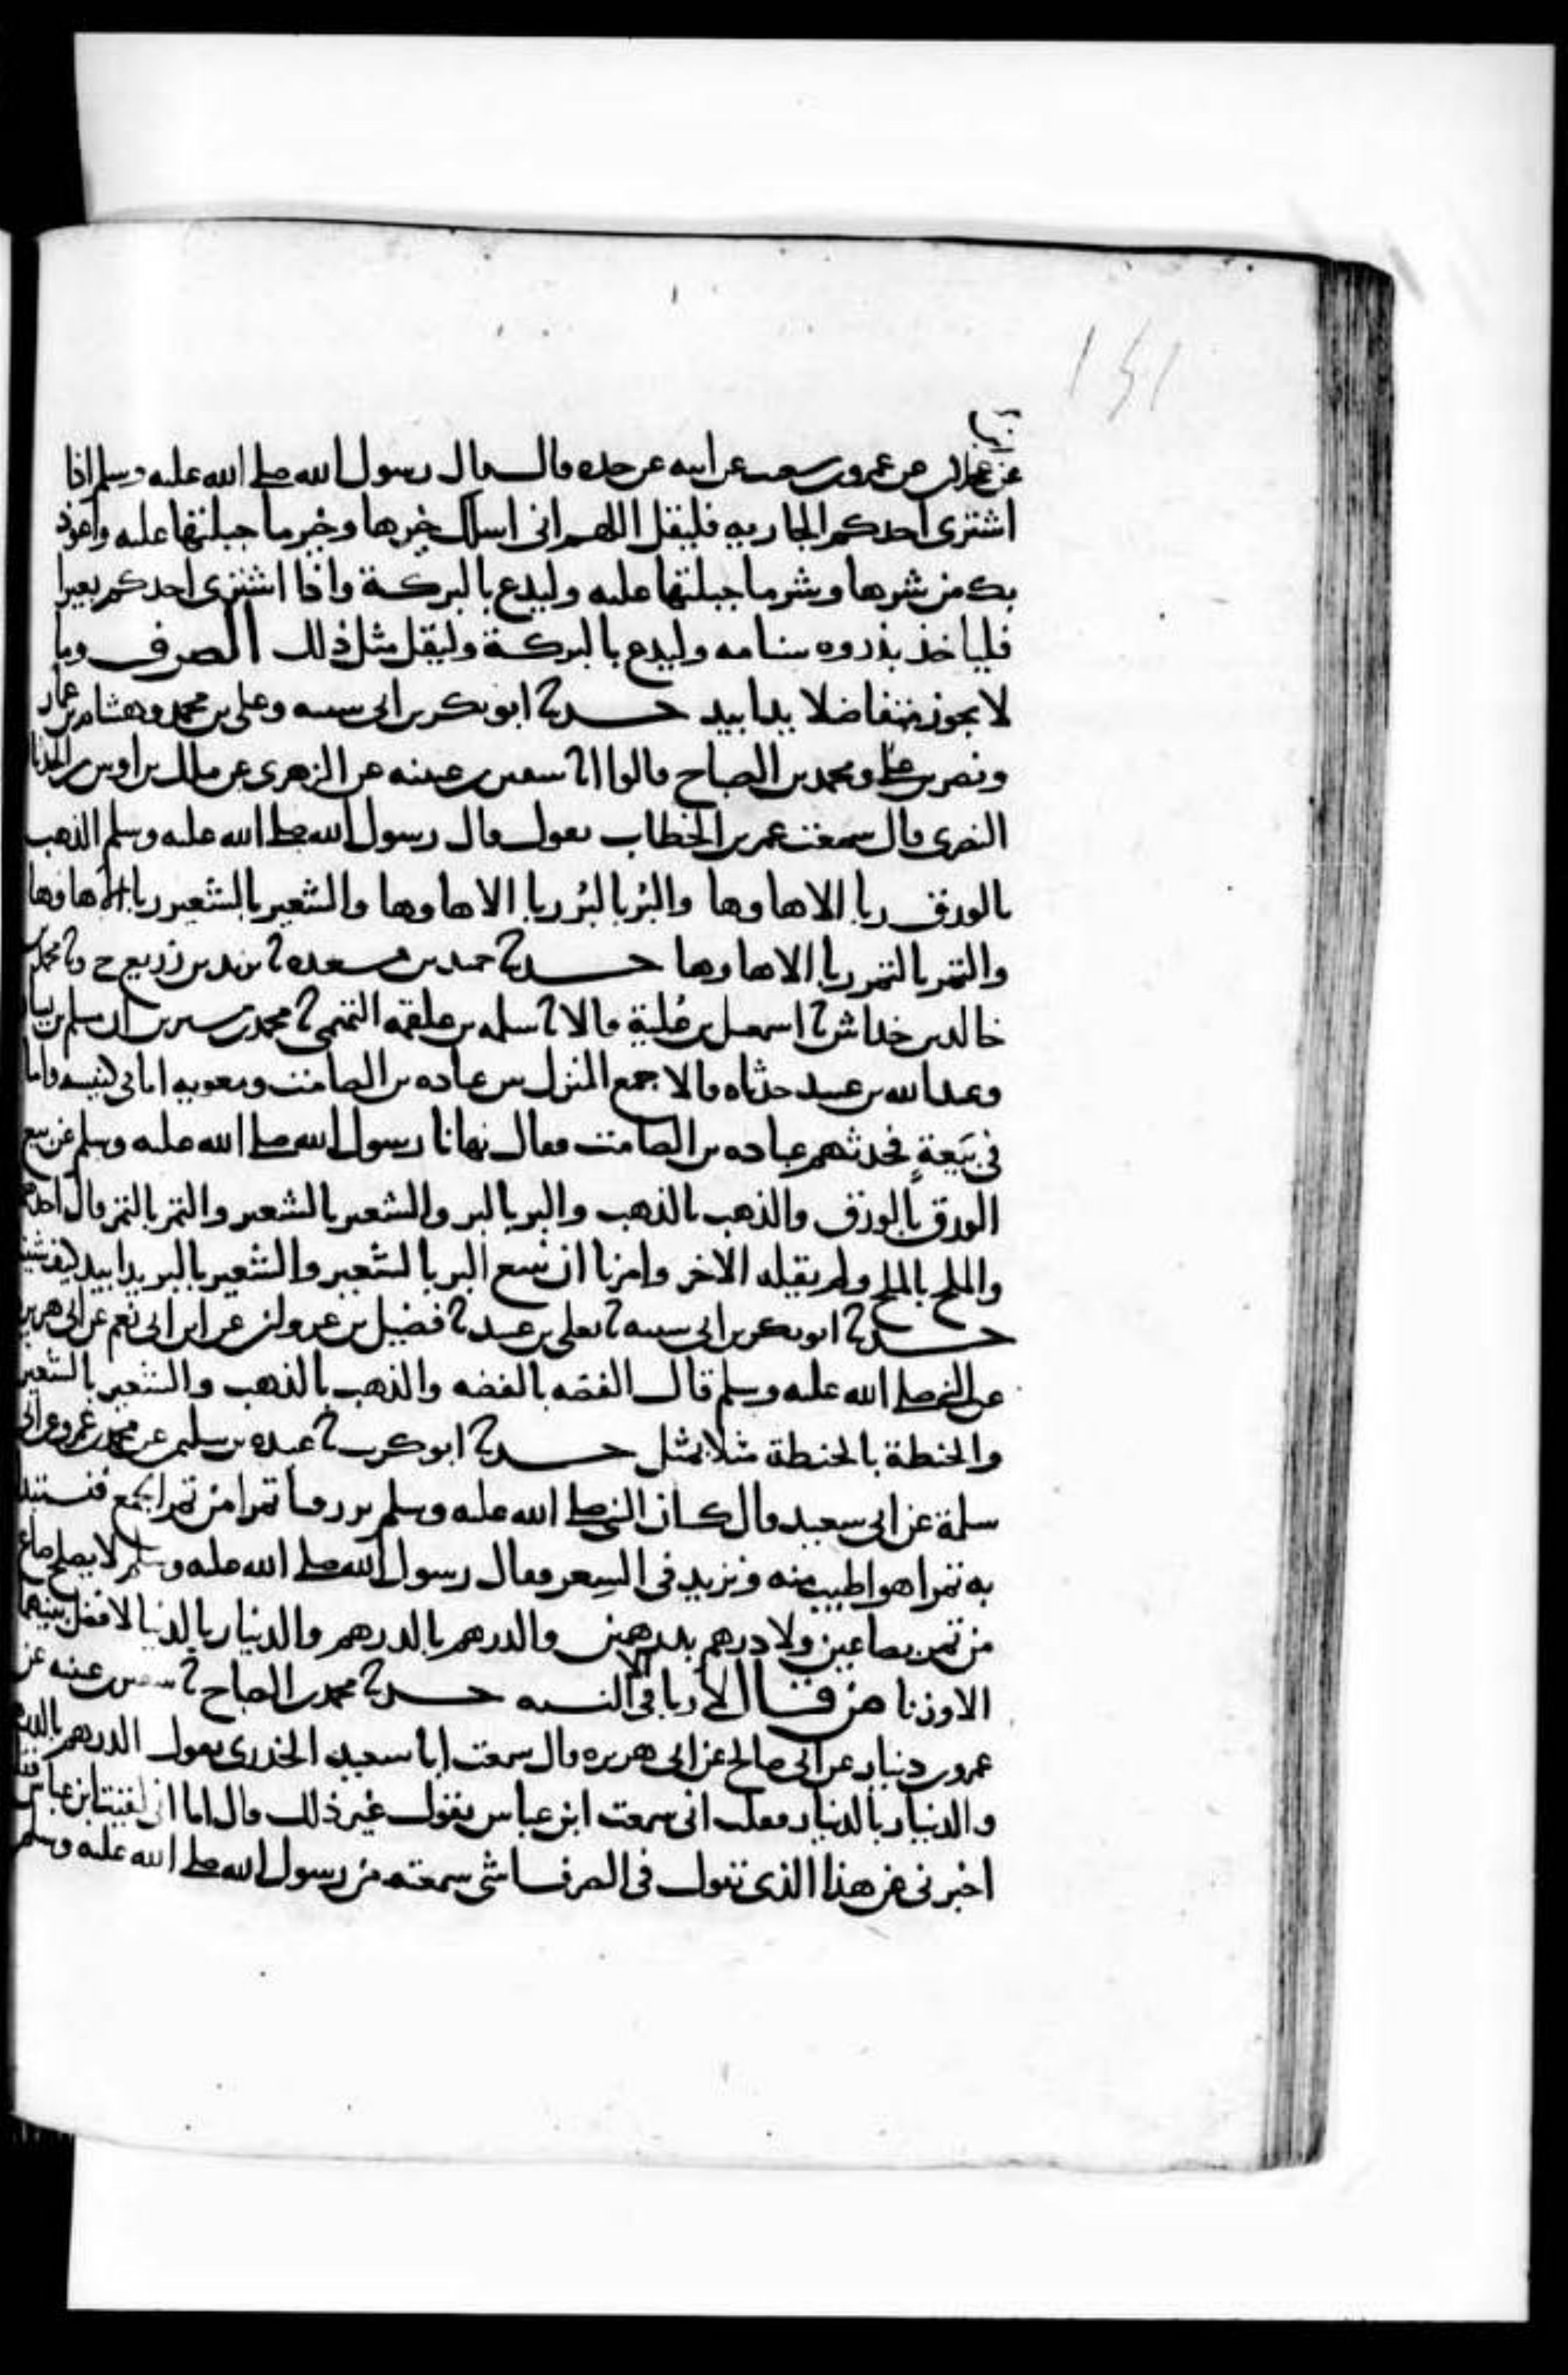 عن عجلان عن عمرو بن شعيب عن ابيه عن جده قال قال رسول الله صلى الله عليه وسلم اذا
اشترى احدكم الجاريه فليقل اللهم انى اسلك خيرها وخير ما جبلتها عليه واعوذ
بك من شرها وشر ما جبلتها عليه وليدع بالبركة واذا اشترى احدكم بعيرا
فلياخذ بذروه سنامه وليدع بالبركة وليقل مثل ذلك الصرف وما
لا يجوز متفاضلا يدا بيد حدثنا ابو بكر بن ابى شيبه وعلى بن محمد وهشام بن عمار
ونصر بن على ومحمد بن الصباح قالوا انا سفين بن عيينه عن الزهرى عن ملك بن اوس بن الحدثا
النصرى قال سمعت عمر بن الخطاب يقول قال رسول الله صلى الله عليه وسلم الذهب
بالورق ربا الا ها وها والبُر بالبُر ربا الا ها وها والشعير بالشعير ربا الا ها وها
والتمر بالتمر ربا الا ها وها حدثنا حميد بن مسعده ثنا يزيد بن زريع ح وثنا محمد بن
خالد بن خداش ثنا اسمعيل بن عُلية قالا ثنا سلمه بن علقمه التميمى ثنا محمد بن سيرين ان مسلم بن يسار
وعبد الله بن عبيد حدثاه قالا جمع المنزل بين عباده بن الصامت ومعويه اما فى كنيسه واما
فى بَيعةٍ فحدثهم عباده بن الصامت فقال نهانا رسول الله صلى الله عليه وسلم عن بيع
الورق بالورق والذهب بالذهب والبر بالبر والشعير بالشعير والتمر بالتمر قال احدهما
والملح بالملح ولم يقله الاخر وامرنا ان نبيع البر بالشعير والشعير بالبر يدا بيد كيف شئنا
حدثنا ابو بكر بن ابى شيبه ثنا يعلى بن عبيد ثنا فضيل بن غزوان عن ابن ابى نعم عن ابى هريره
عن النبى صلى الله عليه وسلم قال الفضه بالفضه والذهب بالذهب والشعير بالشعير
والحنطة بالحنطة مثلا بمثل حدثنا ابو كريب ثنا عبده بن سليمن عن محمد بن عمرو عن ابى
سلمة عن ابى سعيد قال كان النبى صلى الله عليه وسلم يرزقنا تمرا من تمر الجمع فنستبدل
به تمرا هو اطيب منه ونزيد فى السِعر فقال رسول الله صلى الله عليه وسلم لا يصلح صاع
من تمر بصاعين ولا درهم بدرهمين والدرهم بالدرهم والدينار بالدينا لا فضل بينهما
الا وزنا من قال لا ربا الا فى النسيه حدثنا محمد بن الصباح ثنا سفين بن عيينه عن
عمرو بن دينار عن ابى صالح عن ابى هريره قال سمعت ابا سعيد الخدرى يقول الدرهم بالدرهم
والدينار بالدينار فقلت انى سمعت ابن عباس يقول غير ذلك قال اما انى لقيت ابن عباس فقلت
اخبرنى عن هذا الذى تقول فى الصرف اشى سمعته من رسول الله صلى الله عليه وسلم